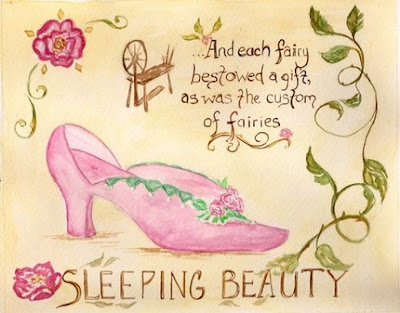 ...And each fairy
bestowed a gift,
as was the custom
of fairies
SLEEPING BEAUTY